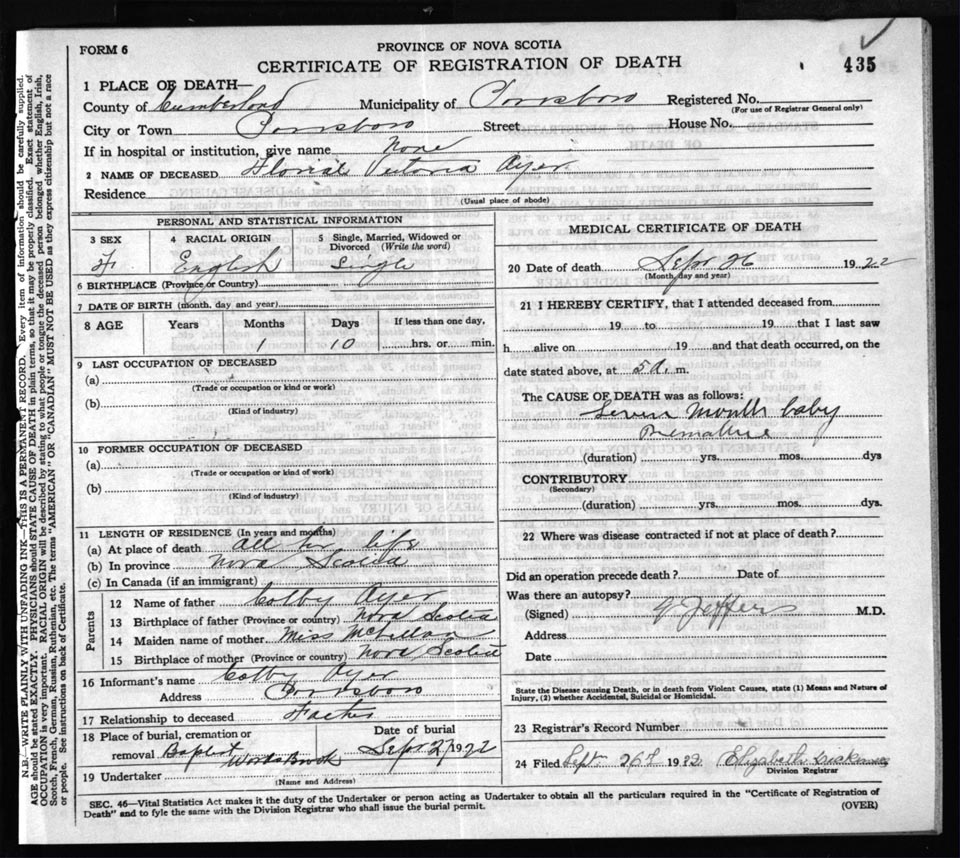 FORM 6
PROVINCE OF NOVA SCOTIA
CERTIFICATE OF REGISTRATION OF DEATH
435
1 PLACE OF DEATH—
County of Cumberland Municipality of Parrsboro Registered No.
(For use of Registrar General only)
City or Town Parrsboro Street House No.
If in hospital or institution, give name None
2 NAME OF DECEASED Victoria Ayer
Residence
(Usual place of abode)
PERSONAL AND STATISTICAL INFORMATION
3 SEX 4 RACIAL ORIGIN 5 Single, Married, Widowed or Divorced (Write the word)
F English Single
6 BIRTHPLACE (Province or Country)
7 DATE OF BIRTH (month, day and year)
8 AGE Years Months Days If less than one day,
1 10 hrs. or min.
9 LAST OCCUPATION OF DECEASED
(a)
(Trade or occupation or kind or work)
(b)
(Kind of industry)
10 FORMER OCCUPATION OF DECEASED
(a)
(Trade or occupation or kind of work)
(b)
(Kind of industry)
11 LENGTH OF RESIDENCE (In years and months)
(a) At place of death all life
(b) In province Nova Scotia
(c) In Canada (if an immigrant)
Parents
12 Name of father Colby Ayer
13 Birthplace of father (Province or country) Nova Scotia
14 Maiden name of mother Miss McLellan
15 Birthplace of mother (Province or country) Nova Scotia
16 Informant's name Colby Ayer
Address Parrsboro
17 Relationship to deceased Father
18 Place of burial, cremation or Date of burial
removal Baptist Sept 27 1922
19 Undertaker
(Name and Address)
MEDICAL CERTIFICATE OF DEATH
20 Date of death Sept 26 1922
(Month, day and year)
21 I HEREBY CERTIFY, that I attended deceased from
19 to 19 that I last saw
h alive on 19 and that death occurred, on the
date stated above, at 5 a. m.
The CAUSE OF DEATH was as follows:
Seven Month baby
Premature
(duration) yrs. mos. dys
CONTRIBUTORY
(Secondary)
(duration) yrs. mos. dys.
22 Where was disease contracted if not at place of death?
Did an operation precede death? Date of
Was there an autopsy?
(Signed) G Jeffers M.D.
Address
Date
State the Disease causing Death, or in death from Violent Causes, state (1) Means and Nature of
Injury, (2) whether Accidental, Suicidal or Homicidal.
23 Registrar's Record Number
24 Filed Sept 26th 1922 Elizabeth
Division Registrar
SEC. 46—Vital Statistics Act makes it the duty of the Undertaker or person acting as Undertaker to obtain all the particulars required in the "Certificate of Registration of
Death" and to fyle the same with the Division Registrar who shall issue the burial permit.
(OVER)
N.B.—WRITE PLAINLY WITH UNFADING INK—THIS IS A PERMANENT RECORD. Every item of information should be carefully supplied.
AGE should be stated EXACTLY. PHYSICIANS should STATE CAUSE OF DEATH in plain terms, so that it may be properly classified. Exact statement of
OCCUPATION is very important. RACIAL ORIGIN will be described by stating to what people or tongue the deceased person belonged whether English, Irish,
Scotch, French, German, Russian, Ruthenian, etc. The terms "AMERICAN" OR "CANADIAN" MUST NOT BE USED as they express citizenship but not a race
or people. See instructions on back of Certificate.